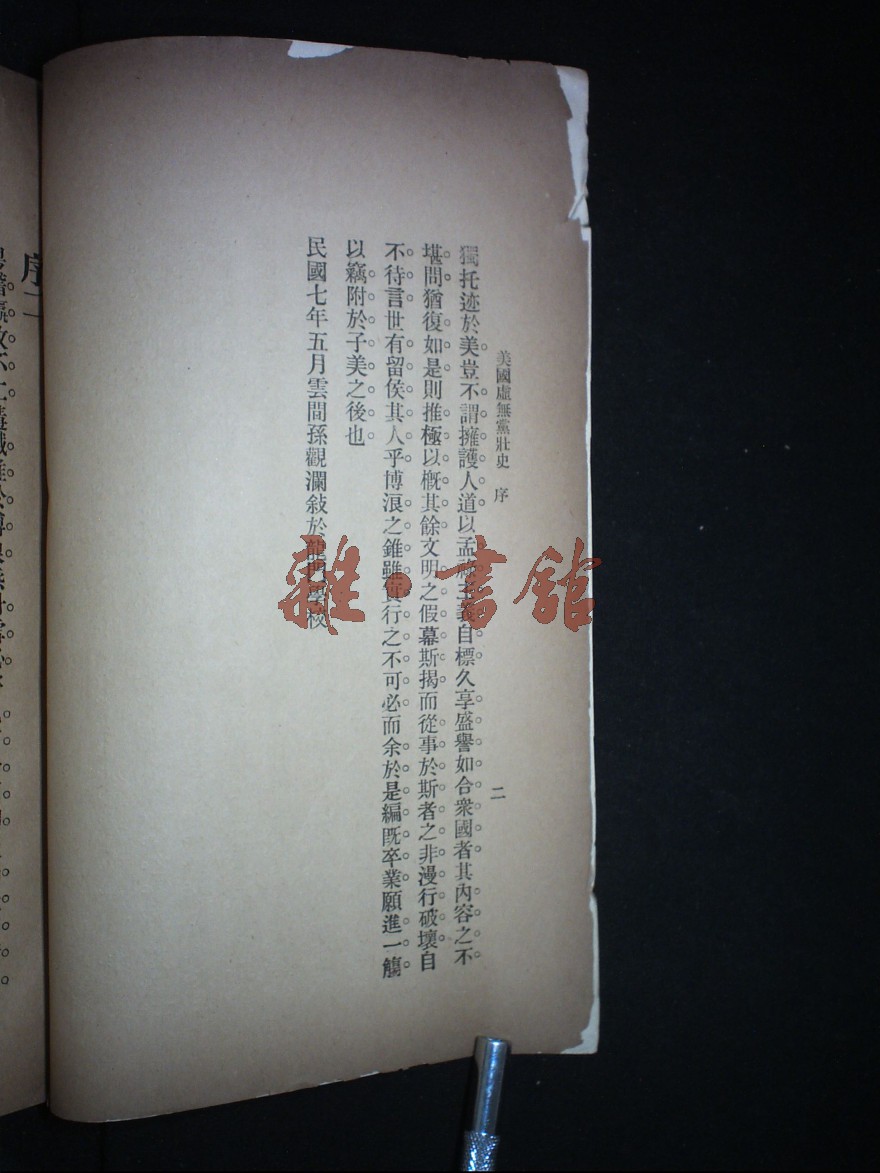 美國虛無黨壯史 序
二
獨托迹於美豈不謂擁護人道以孟祿主義自標久享盛譽如合衆國者其內容之不
堪問猶復如是則推極以槪其餘文明之假幕斯揭而從事於斯者之非漫行破壞自
不待言世有留侯其人乎博浪之錐雖實行之不可必而余於是編既卒業願進一觴
以竊附於子美之後也
民國七年五月雲間孫觀瀾敍於龍門學校
雜·書館
序二